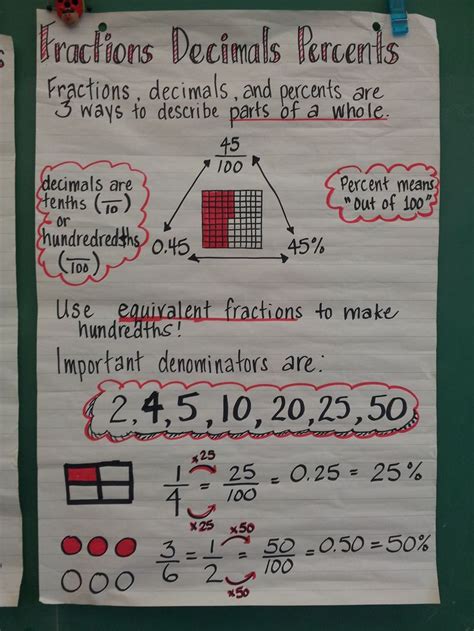 Fractions Decimals Percents
Fractions, decimals, and percents are
3 ways to describe parts of a whole.
45/100
decimals are
tenths (/10)
or
hundredredths
(/100)
Percent means
"out of 100"
0.45
45%
Use equivalent fractions to make
hundredths!
Important denominators are:
2, 4, 5, 10, 20, 25, 50
x25
1/4 = 25/100 = 0.25 = 25%
x25
x50
3/6 = 1/2 = 50/100 = 0.50 = 50%
x50